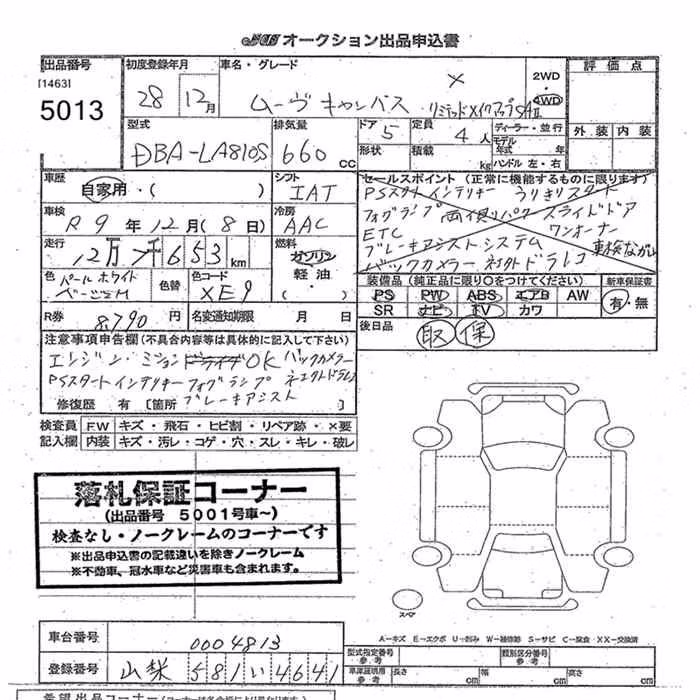 JCB オークション出品申込書
出品番号
[1463]
5013
初度登録年月
28 12月
車名・グレード
ムーヴ キャンバス リミテッドメイクアップSAⅡ
2WD
4WD
評価点
外装 内装
型式
DBA-LA810S
排気量
660 cc
ドア 5
形状
定員 4人
積載 kg
ディーラー・並行
モデル年式 年
ハンドル 左・右
車歴
自家用・( )
シフト
IAT
車検
R9年12月(8日)
冷房
AAC
走行
12万7千653km
燃料
ガソリン
軽油・
色
パールホワイト
ベージュM
色替
色コード
XE9
R券
8,790円
名変通知期限 月 日
セールスポイント (正常に機能するものに限ります)
PSスタート インテリキー
フォグランプ 両側パワースライドドア
ETC ワンオーナー
ブレーキアシストシステム 車検ながい
バックカメラー ネオトドラレコ
装備品 (純正品に限り○をつけてください)
新車保証書
PS PW ABS エアB AW
SR ナビ TV カワ
有・無
後日品
取 保
注意事項申告欄 (不具合内容等は具体的に記入して下さい)
エンジン・ミション ドライブOK バックカメラー
PSスタート インテリキー フォグランプ
ブレーキアシスト
修復歴 有 [箇所
検査員記入欄
F.W キズ・飛石・ヒビ割・リペア跡・×要
内装 キズ・汚レ・コゲ・穴・スレ・キレ・破レ
落札保証コーナー
(出品番号 5001号車~)
検査なし・ノークレームのコーナーです
※出品申込書の記載違いを除きノークレーム
※不動車、冠水車など災害車も含まれます。
スペア
A-キズ E-エクボ U-凹み W-補修跡 S-サビ C-腐食 XX-交換済
車台番号
0004813
登録番号
山梨 581 い 4641
型式指定番号 参考
類別区分番号 参考
車庫証明用 参考 長さ cm 幅 cm 高さ cm
希望出品コーナー